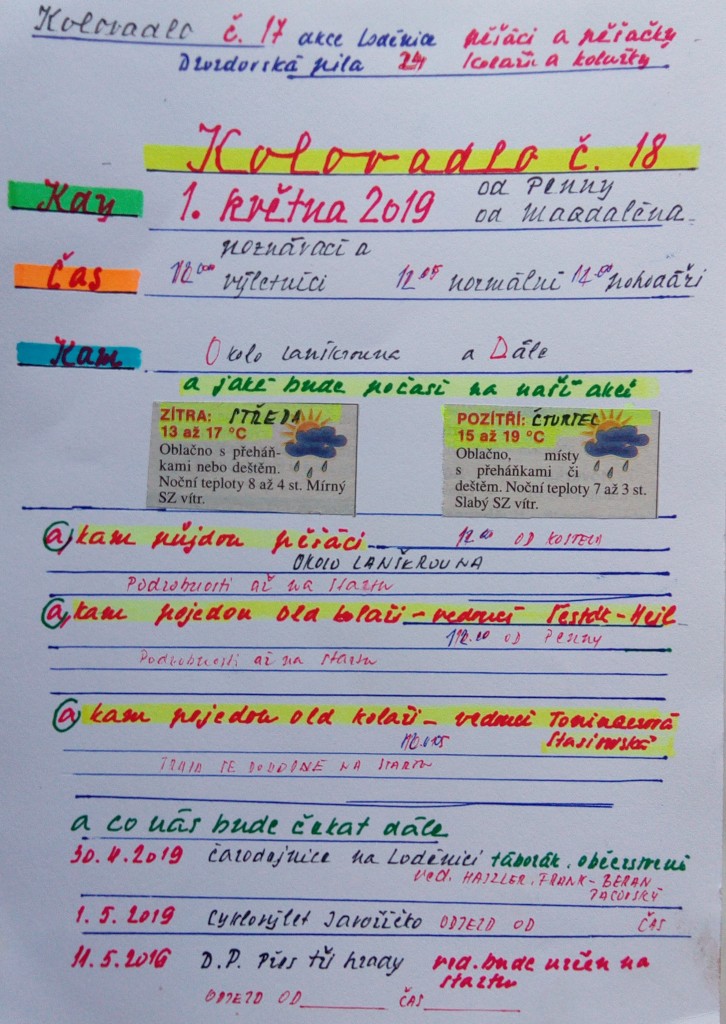 Kolovadlo č. 17 akce Loděnice pěšáci a pěšačky
Drozdovská pila 24 kolaři a kolařky
Kolovadlo č. 18
Kdy 1. května 2019 od Penny
od Magdaléna
poznávací a
Čas 12⁰⁰ výletníci 12⁰⁵ normální 12⁰⁰ pohodáři
Kam Okolo Lanškrouna a Dále
a jaké bude počasí na naší akci
ZÍTRA: STŘEDA
13 až 17 °C
Oblačno s přeháň-
kami nebo deštěm.
Noční teploty 8 až 4 st. Mírný
SZ vítr.
POZÍTŘÍ: ČTVRTEC
15 až 19 °C
Oblačno, místy
s přeháňkami či
deštěm. Noční teploty 7 až 3 st.
Slabý SZ vítr.
a, kam půjdou pěšáci 12⁰⁰ OD KOSTELA
OKOLO LANŠKROUNA
Podrobnosti až na startu
a, kam pojedou old kolaři - vedoucí
OD PENNY
Podrobnosti až na startu
a kam pojedou old kolaři - vedoucí
TRASA SE DOHODNE NA STARTU
a co nás bude čekat dále
30.4.2019 čarodejnice na Loděnici táborák. občerstvení
ved. HAJZLER. FRANK - BERAN
1.5.2019 Cyklovýlet Javoříčko ODJEZD OD ČAS
11.5.2016 D.P. Přes tři hrady ved. bude určen na
startu
ODJEZD OD ČAS